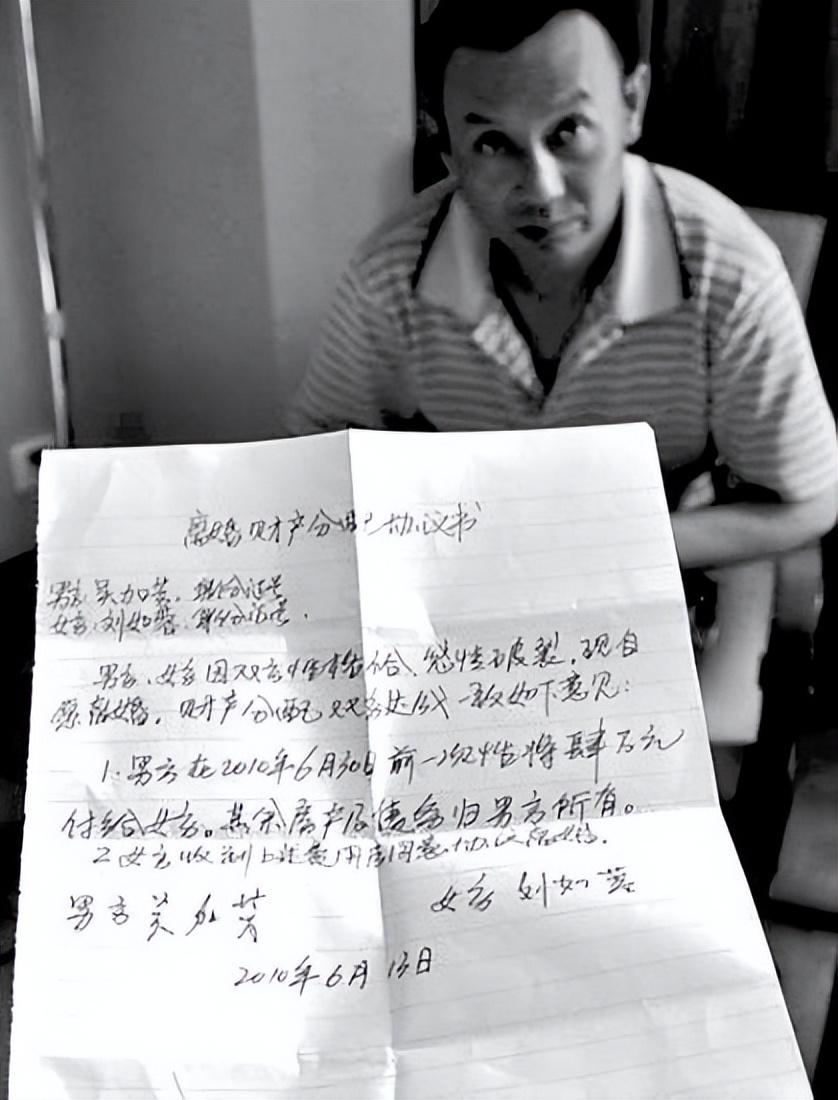 离婚财产分配协议书
男方吴加芳，身份证号
女方：刘如蓉，身份证号．
男方、女方因双方性格不合，感情破裂，现自
愿离婚。财产分配双方达成一致如下意见：
1、男方在2010年6月30日前一次性将肆万元
付给女方。其余房产及债务归男方所有。
2 女方收到上述费用后同意协议离婚。
男方 吴加芳
女方 刘如蓉
2010年6月13日